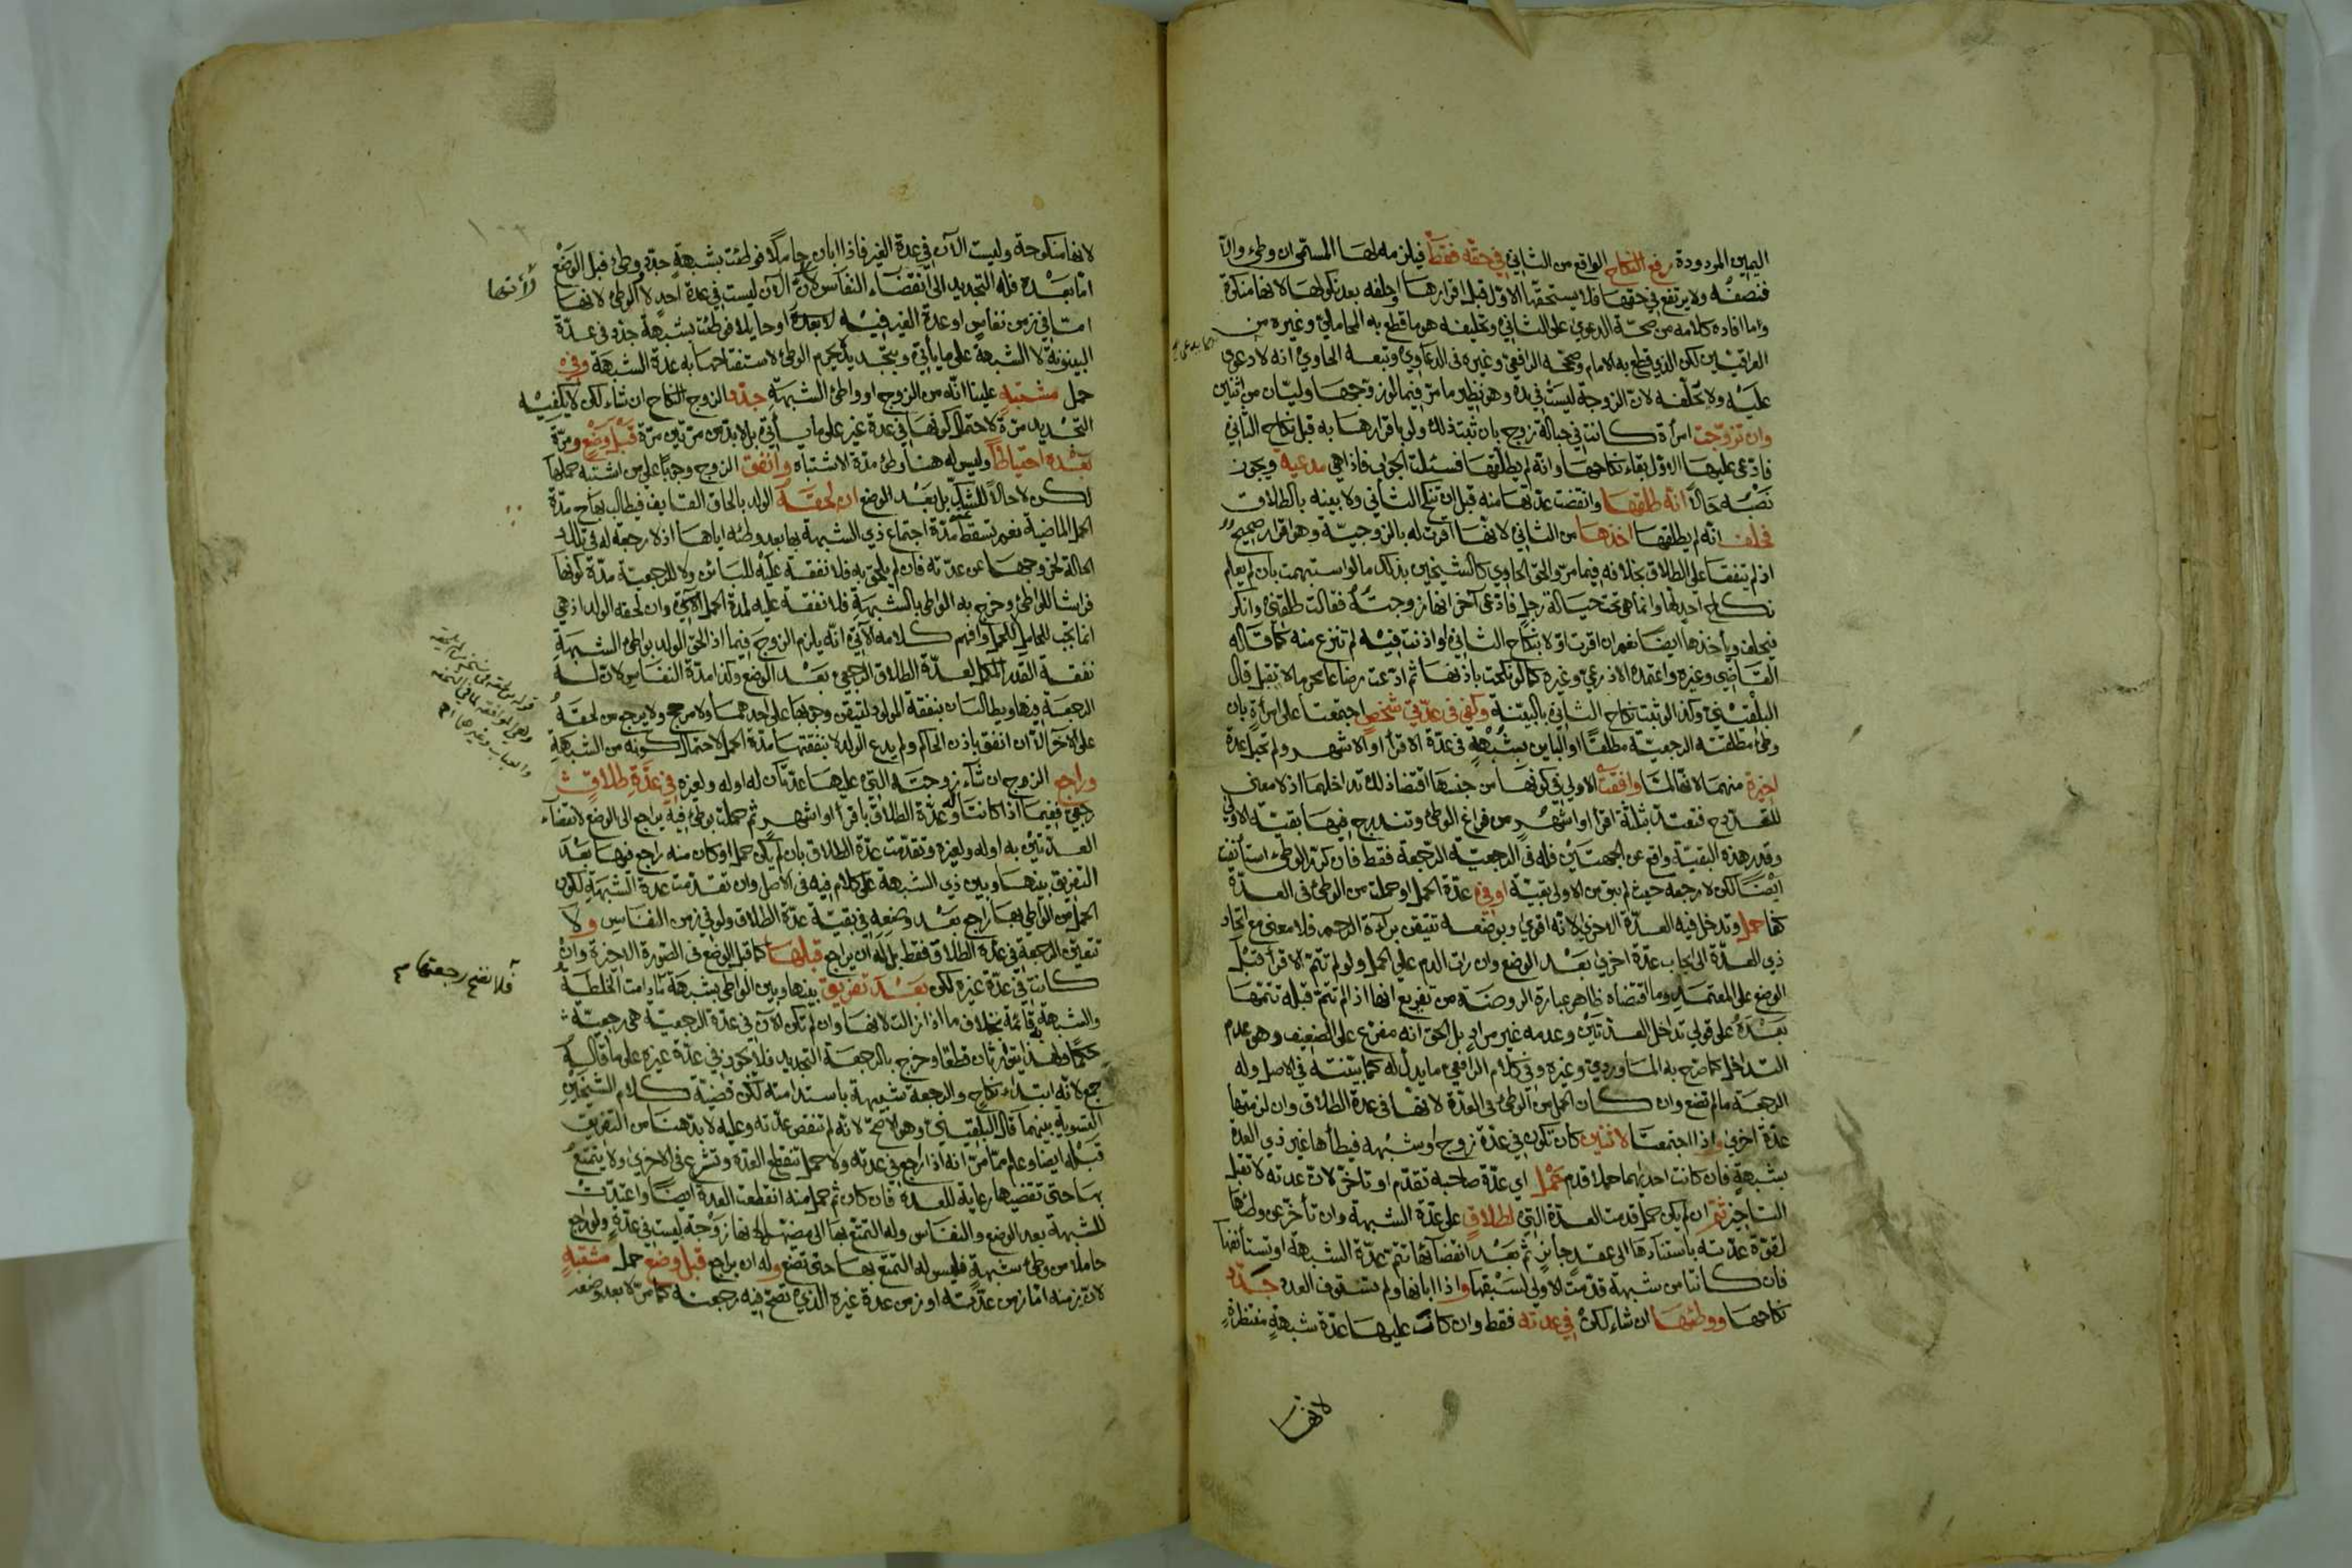 اليمين المردودة رفع النكاح الواقع من الثاني في حقه فقط فيلزمه لها المسمى ان وطئ والا
فنصفه ولا يرتفع في حقها فلا يستحقها الاول قبل اقرارها او حلفه بعد نكولها لانها منكرة
واما افاده كلامه من صحة الدعوى على الثاني وتحليفه هو ما قطع به المحاملي وغيره من
العراقيين لكن الذي قطع به الامام وصححه الرافعي وغيره في الدعاوي وتبعه الحاوي انه لا دعوى
عليه ولا تحلفه لان الزوجة ليست في يده وهو نظير ما مر فيما لو زوجها وليان من اثنين
وان تزوجت امرأة كانت في حبالة زوج بان ثبت ذلك ولو باقرارها به قبل نكاح الثاني
فادعى عليها الاول بقاء نكاحها وانه لم يطلقها فسئلت الجواب فاذا هي مدعية ويجوز
نصبه حالا انه طلقها وانقضت عدتها منه قبل ان تنكح الثاني ولا بينة بالطلاق
فحلف انه لم يطلقها اخذها من الثاني لانها اقرت له بالزوجية وهو اقرار صحيح
اذ لم يتفقا على الطلاق بخلافه فيما مر والحق الحاوي كالشيخين بذلك ما لو استبهمت بان لم يعلم
نكاح احد لها وانما هي تحت حيالة رجل فادعى آخر انها زوجته فقالت طلقني وانكر
فيحلف ويأخذها ايضا نعم ان اقرت اولا بنكاح الثاني او اذنت فيه لم تنزع منه كما قاله
القاضي وغيره واعتمده الاذرعي وغيره كما لو نكحت باذنها ثم ادعت رضاعا محرما لا تقبل قال
البلقيني وكذا لو ثبت نكاح الثاني بالبينة وكفى في عدتي شخص اجتمعتا على امرأة بان
وطئ مطلقته الرجعية مطلقا او البائن بشبهة في عدة الاقراء او الاشهر ولم تحبل عدة
اخيرة منهما لانها لما وافقت الاولى في كونها من جنسها اقتضا ذلك تداخلهما اذ لا معنى
للتعدد فتعتد بثلاثة اقراء او اشهر من فراغ الوطئ وتندرج فيها بقية الاولى
وقدر هذه البقية واقع عن الجهتين فله في الرجعية الرجعة فقط فان كرر الوطئ استأنفت
ايضا لكن لا رجعة حيث لم يبق من الاولى بقية او في عدة الحمل او حملت من الوطئ في العدة
كفا حمل وتدخل فيه العدة الاخرى لانه اقوى وبوضعه تتيقن براءة الرحم فلا معنى مع اتحاد
ذي العدة الى ايجاب عدة اخرى بعد الوضع وان رات الدم على الحمل ولو لم تتم الاقراء قبل
الوضع على المعتمد وما اقتضاه ظاهر عبارة الروضة من تفريع انها اذا لم تتم قبله تتمها
بعده على قولي تداخل العدتين وعدمه غير مراد بل الحق انه مفرع على الضعيف وهو عدم
التداخل كما صرح به الماوردي وغيره وفي كلام الرافعي ما يدل له كما بينته في الاصل وله
الرجعة ما لم تضع وان كان الحمل من الوطئ في العدة لانها في عدة الطلاق وان لزمتها
عدة اخرى واذا اجتمعتا لاثنين كان تكون في عدة زوج او شبهة فيطأها غير ذي العدة
بشبهة فان كانت احديهما حملا قدم حمل اي عدة صاحبه تقدم او تأخر لان عدته لا تقبل
التاخير ثم ان لم يكن حمل قدمت العدة التي لطلاق على عدة الشبهة وان تأخر عن وطئها
لقوة عدته باستنادها الى عقد جائز ثم بعد انقضائها تتم عدة الشبهة او تستأنفها
فان كانتا من شبهة قدمت الاولى لسبقها واذا ابانها ولم تستوف العدة جدد
نكاحها ووطئها ان شاء لكن في عدته فقط وان كانت عليها عدة شبهة منتظرة
لانها
لانها منكوحة وليست الآن في عدة الغير فاذا ابان حاملا فوطئت بشبهة جدد ووطئ قبل الوضع
اما بعده فله التجديد الى انقضاء النفاس لان الآن ليست في عدة احد لا الوطئ لانها
اما في زمن نفاس او عدة الغير فيه لا بعده او حايلا فوطئت بشبهة جدد في عدة
البينونة لا الشبهة على ما يأتي وبتجديد يحرم الوطئ لاستفتاحها به عدة الشبهة وفي
حمل مشتبه علينا انه من الزوج او واطئ الشبهة جدد الزوج النكاح ان شاء لكن لا يكفيه
التجديد مرة لاحتمال كونها في عدة غيره على ما يأتي بل لا بد من مرتين مرة قبل وضع ومرة
بعده احتياطا وليس له هنا وطئ مدة الاشتباه وانفق الزوج وجوبا على من اشتبه حملها
لكن لا حالا للشك بل بعد الوضع ان لحقه الولد بالحاق القايف فيطالب بها ج مدة
الحمل الماضية نعم تسقط مدة اجتماع ذي الشبهة بها بعد وطئه اياها اذ لا رجعة له في تلك
الحالة لخروجها عن عدته فان لم يلحق به فلا نفقة عليه للبائن ولا للرجعية مدة كونها
فراشا للواطئ وخرج به الواطئ بالشبهة فلا نفقة عليه لمدة الحمل الآتي وان لحقه الولد اذ هي
انما تجب للحامل للحمل وافهم كلامه الآتي انه يلزم الزوج فيما اذا لحق الولد بواطئ الشبهة
نفقة القدر المكمل لعدة الطلاق الرجعي بعد الوضع وكذا مدة النفاس لان له
الرجعة فيها ويطالبان بنفقة المولود لتيقن وجوبها على احدهما ولا مرجح ولا يرجع من لحقه
على الآخر الا ان انفق باذن الحاكم ولم يدع الولد لا بنفقتها مدة الحمل لاحتمال كونه من الشبهة
وراجع الزوج ان شاء زوجته التي عليها عدتان له اوله ولغيره في عدة طلاق
رجعي ففيما اذا كانتا له وعدة الطلاق باقراء او اشهر ثم حملت بوطئ فيه يراجع الى الوضع لانقضاء
العدتين به اوله ولغيره وتقدمت عدة الطلاق بان لم يكن حمل او كان منه راجع فيها بعد
التفريق بينها وبين ذي الشبهة على كلام فيه في الاصل وان تقدمت عدة الشبهة لكون
الحمل من الواطئ بها راجع بعد وضعه في بقية عدة الطلاق ولو في زمن النفاس ولا
تتعين الرجعة في عدة الطلاق فقط بل له ان يراجع قبلها كما قبل الوضع في الصورة الاخيرة وان
كانت في عدة غيره لكن بعد تفريق بينها وبين الواطئ بشبهة ما دامت الخلطة
والشبهة قائمة بخلاف ما اذا زالت لانها وان لم تكن الآن في عدة الرجعية هي رجعية
حكما ولهذا يتوارثان قطعا وخرج بالرجعة التجديد فلا يجوز في عدة غيره على ما قاله
جمع لانه ابتداء نكاح والرجعة شبيهة باستدامته لكن قضية كلام الشيخين
التسوية بينهما قال البلقيني وهو الاصح لانه لم تنقض عدته وعليه لا بد هنا من التفريق
قبله ايضا وعلم مما مر انه اذا راجع في عدته ولا حمل تنقطع العدة وتشرع في الاخرى ولا يتمتع
بها حتى تقضيها رعاية للعدة فان كان ثم حمل منه انقطعت العدة ايضا واعتدت
للشبهة بعد الوضع والنفاس وله التمتع بها الى مضيهما لانها زوجة ليست في عدة ولو راجع
حاملا من وطئ شبهة فليس له التمتع بها حتى تضع وله ان يراجع قبل وضع حمل مشتبه
لان زمنه اما زمن عدته او زمن عدة غيره الذي تصح فيه رجعته كما مر لا بعد وضعه
لأنها
فلا تصح رجعتها